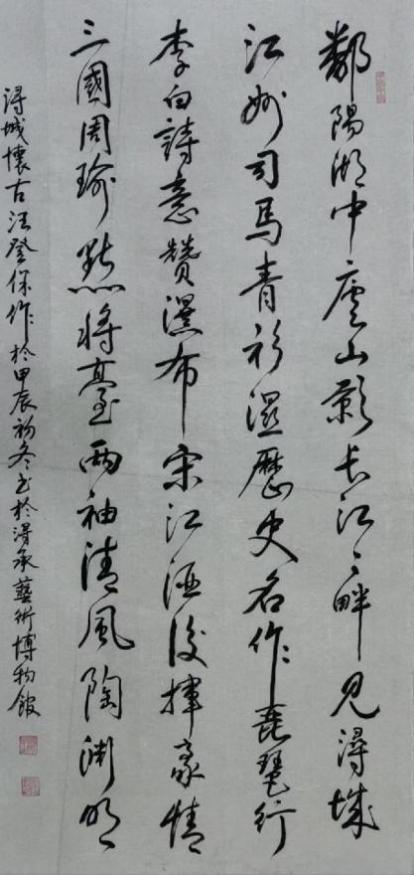 鄱陽湖中廬山影長江之畔見潯城
江州司馬青衫濕歷史名作琵琶行
李白詩意贊瀑布宋江酒後揮豪情
三國周瑜點將臺兩袖清風陶淵明
潯城懷古汪登保作於甲辰初冬書於潯承藝術博物館